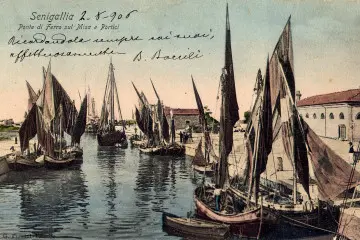 Senigallia 2-8-906
Ponte di Ferro sul Misa e Portici
Ricordandola sempre cai saluti
affettuosamente B.